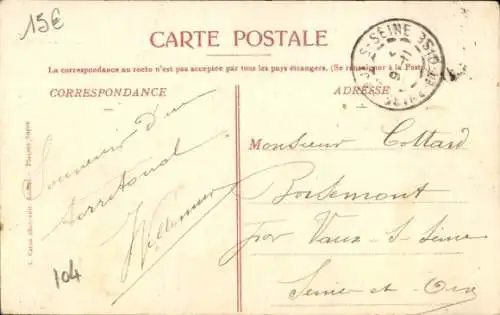 15€
CARTE POSTALE
La correspondance au recto n'est pas acceptée par tous les pays étrangers. (Se renseigner à la Poste.)
CORRESPONDANCE
ADRESSE
Souvenir d'un
territorial
Villemur
104
Monsieur Cottard
Boisemont
par Vaux-S-Seine
Seine-et-Oise